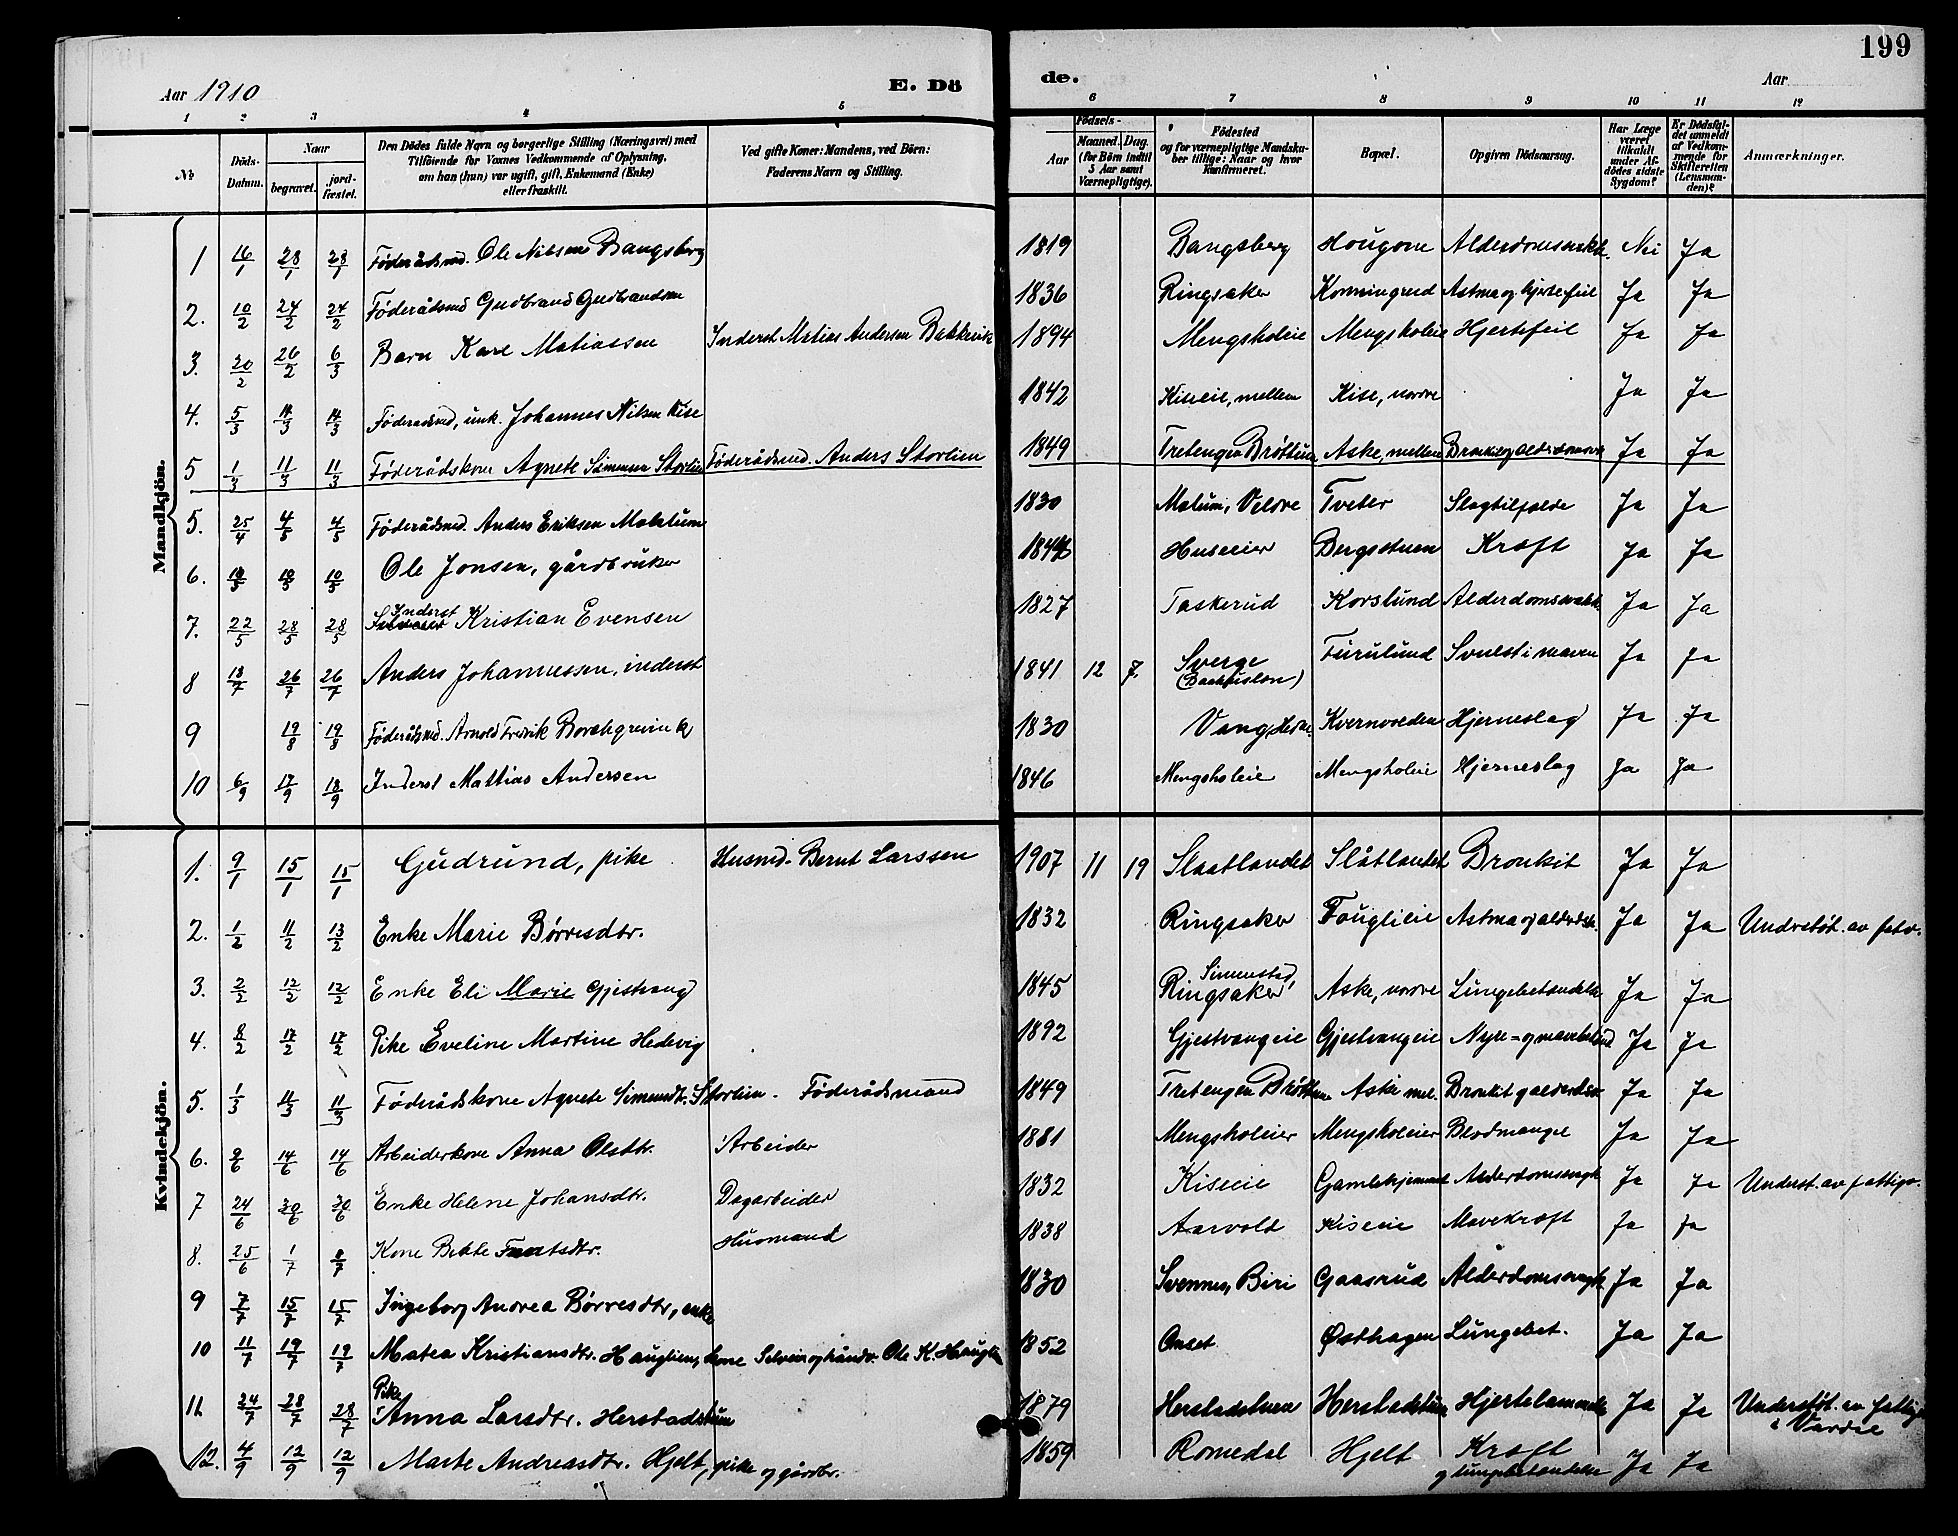 199
Aar 1910
E. Dö
de.
Aar
1 2 3 4 5 6 7 8 9 10 11 12
No
Döds-Datum.
Naar
begravet.
jord-fæstet.
Den Dödes fulde Navn og borgerlige Stilling (Næringsvei) med
Tilföiende for Voxnes Vedkommende af Oplysning,
om han (hun) var ugift, gift, Enkemand (Enke)
eller fraskilt.
Ved gifte Koner: Mandens, ved Börn:
Faderens Navn og Stilling.
Födsels-
Aar
Maaned. Dag.
(for Börn indtil
5 Aar samt
Værnepligtige).
Födested
og for værnepligtige Mandsku-
ber tillige: Naar og hvor
Konfirmeret.
Bopæl.
Opgiven Dödsaarsag.
Har Læge
været
tilkaldt
under Af-
dödes sidste
Sygdom?
Er Dödsfal-
det anmeldt
af Vedkom-
mende for
Skifteretten
(Lensman-
den)?
Anmærkninger.
Mandkjön.
1 16/1 28/1 28/1 Føderådsmd. Ole Nilsen Bangsberg 1819 Bangsberg Hougom Alderdomssvakh. Nei Ja
2. 10/2 24/2 24/2 Føderådsmd Gudbrand Gudbrandsen 1836 Ringsaker Konningrud Astma og hjertefeil Ja Ja
3. 20/2 26/2 6/3 Barn Karl Matiassen Inderst Matias Andersen 1894 Mengsholeie Mengsholeie Hjertefeil Ja Ja
4. 5/3 14/3 14/3 Føderådsmd, unk. Johannes Nilsen Kise 1842 Kiseeie, mellem Kise, nordre Ja Ja
5 1/3 11/3 11/3 Føderådskone Agnete Simensen Storlien Føderådsmd. Anders Storlien 1849 Tretengen Brøttum Aske, mellem Ja Ja
5. 25/4 4/5 4/5 Føderådsmd. Anders Eriksen 1830 Matum, Veldre Tveter Slagtilfælde Ja Ja
6. 10/5 10/5 Ole Jonsen, gårdbruker Huseier Bergsstuen Kræft Ja Ja
7. 22/5 28/5 28/5 Inderst Kristian Evensen 1827 Taskerud Korslund Alderdomssvakh. Ja Ja
8 18/7 26/7 26/7 Anders Johannessen, inderst 1841 12 7. Sverge Furulund Svulst i maven Ja Ja
9 19/8 19/8 Føderådsmd. Arnold Fredrik Borchgrevink 1830 Vang Hedm. Kvernvolden Hjerneslag Ja Ja
10 6/9 17/9 18/9 Inderst Mattias Andersen 1846 Mengsholeie Mengsholeie Hjerneslag Ja Ja
Kvindekjön.
1. 9/1 15/1 15/1 Gudrund, pike Husmd. Bernt Larssen 1907 11 19 Slaatlandet Slåtlandet Bronkit Ja Ja
2. 1/2 11/2 13/2 Enke Marie Børresdtr. 1832 Ringsaker Fouglieie Ja Ja Understøt. av fatv.
3. 2/2 12/2 12/2 Enke Eli Marie Gjestvang 1845 Simenstad, Ringsaker Aske, nordre Lungebetændelse Ja Ja
4. 8/2 17/2 17/2 Pike Eveline Martine Hedevig 1892 Gjestvangeie Gjestvangeie Ja Ja
5. 1/3 11/3 11/3 Føderådskone Agnete Simensdtr. Storlien. Føderådsmand 1849 Tretengen Brøttum Aske mel. Ja Ja
6. 9/6 14/6 14/6 Arbeiderkone Anna Olsdtr. Arbeider 1881 Mengsholeier Mengsholeier Blodmangel Ja Ja
7 24/6 30/6 30/6 Enke Helene Johansdtr. Dagarbeider 1832 Kiseeie Gamlehjemmet Alderdomssvagh. Ja Ja Underst. av fattigv.
8. 25/6 1/7 Kone Beate Husmand 1838 Aarvold Kiseeie Mavekræft Ja Ja
9 7/7 15/7 15/7 Ingeborg Andrea Børresdtr, enke 1830 Svennes, Biri Gaasrud Alderdomssvagh. Ja Ja
10 11/7 19/7 19/7 Matea Kristiansdtr. Hauglien, kone Selveier og håndv. Ole K. Hauglien 1852 Onset Østhagen Lungebet. Ja Ja
11 24/7 28/7 28/7 Pike Anna Larsdtr. Herstadstuen 1879 Herstadstuen Herstadstuen Hjertelammelse Ja Ja Understøt. av fattigv. i Vardal
12. 4/9 12/9 12/9 Marte Andreasdtr. Hjelt, pike og gårdbr. 1859 Romedal Hjelt Kræft og lungebetændelse Ja Ja